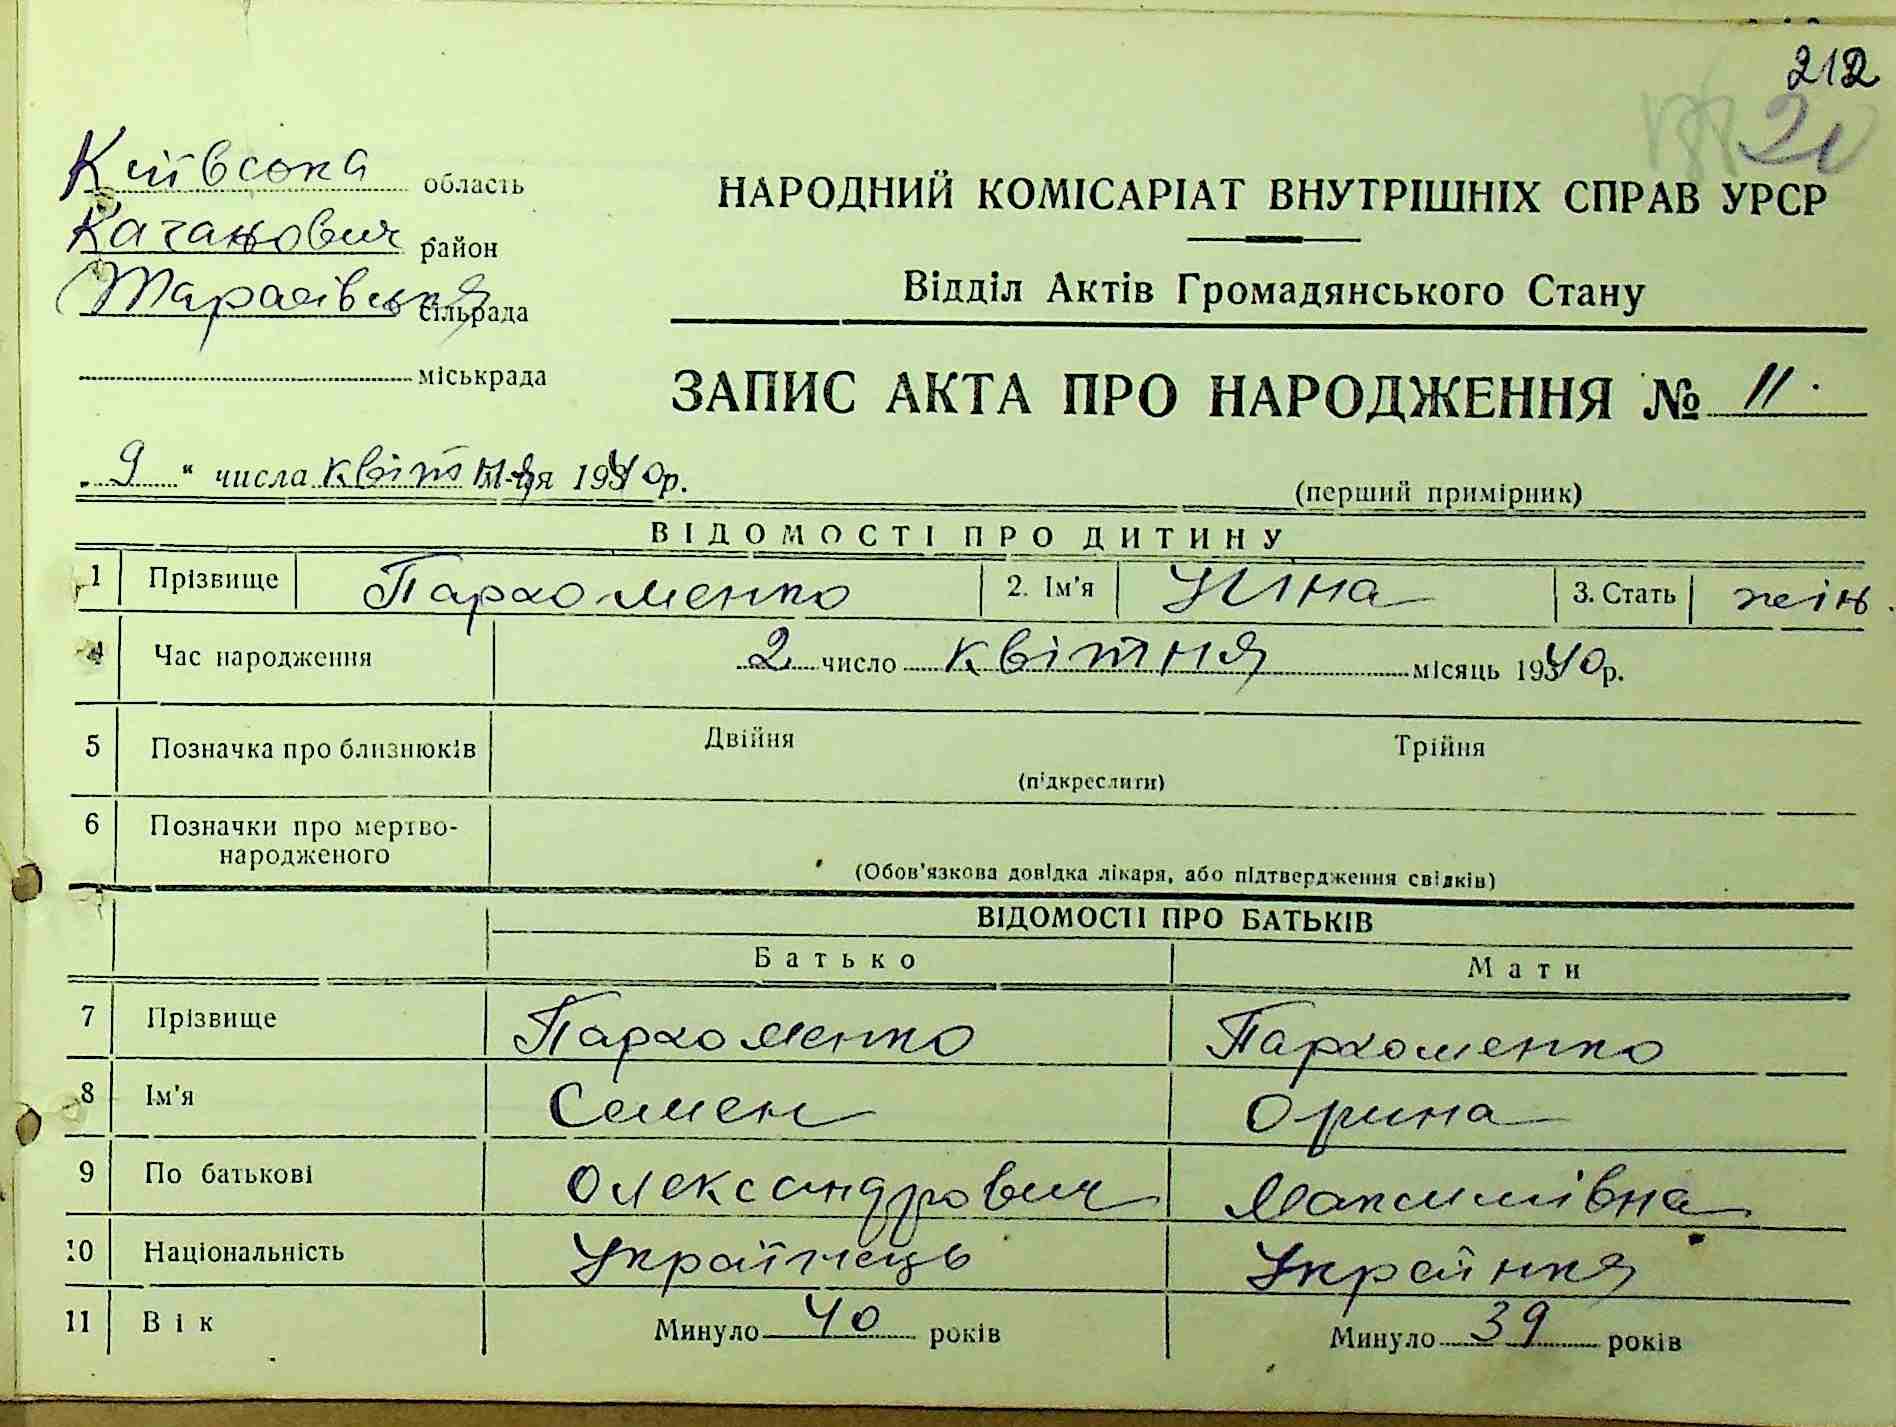 212
20
Київська область
Каганович. район
Тарасівська сільрада
міськрада
НАРОДНИЙ КОМІСАРІАТ ВНУТРІШНІХ СПРАВ УРСР
Відділ Актів Громадянського Стану
ЗАПИС АКТА ПРО НАРОДЖЕННЯ № 11.
„9“ числа квітня м-ця 1940р.
(перший примірник)
ВІДОМОСТІ ПРО ДИТИНУ
1 Прізвище Пархоменко 2. Ім'я Ніна 3. Стать жін.
4 Час народження 2 число квітня місяць 1940р.
5 Позначка про близнюків Двійня Трійня
(підкреслити)
6 Позначки про мертво-
народженого
(Обов'язкова довідка лікаря, або підтвердження свідків)
ВІДОМОСТІ ПРО БАТЬКІВ
Батько Мати
7 Прізвище Пархоменко Пархоменко
8 Ім'я Семен Орина
9 По батькові Олександрович Максимівна
10 Національність Українець Українка
11 Вік Минуло 40 років Минуло 39 років